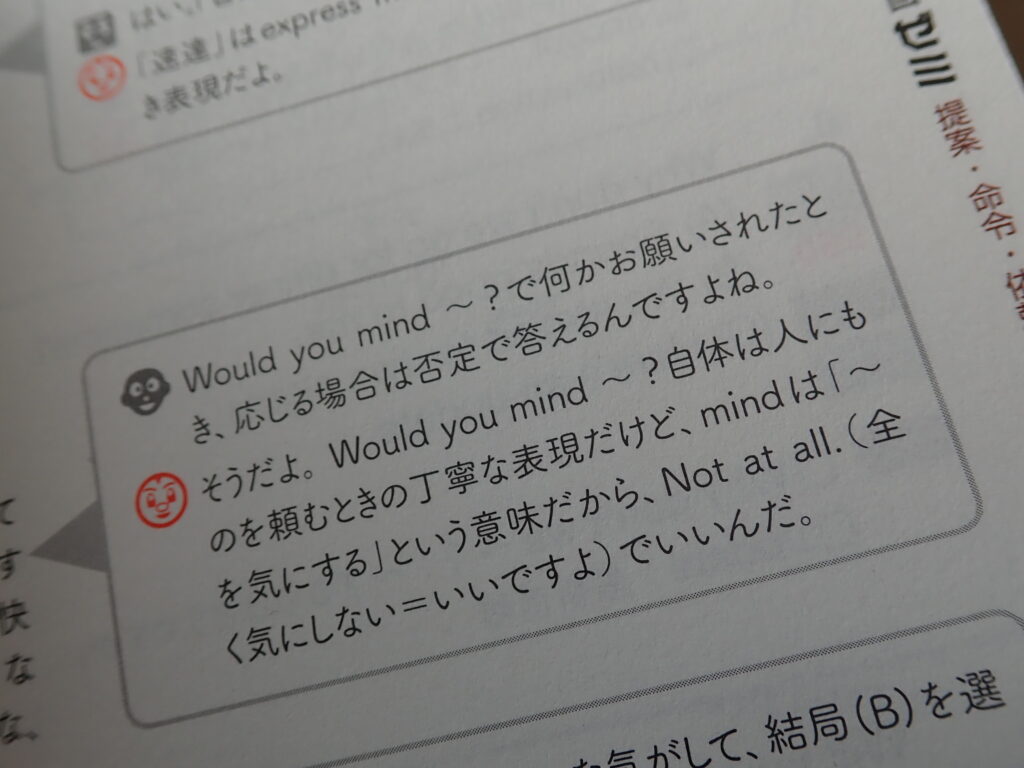 はい。
「速達」はexpress
き表現だよ。
ゼミ 提案・命令・依
Would you mind ～？で何かお願いされたと
き、応じる場合は否定で答えるんですよね。
そうだよ。Would you mind ～？自体は人にも
のを頼むときの丁寧な表現だけど、mindは「～
を気にする」という意味だから、Not at all.（全
く気にしない＝いいですよ）でいいんだ。
て
す
快
な
な。
な気がして、結局（B）を選